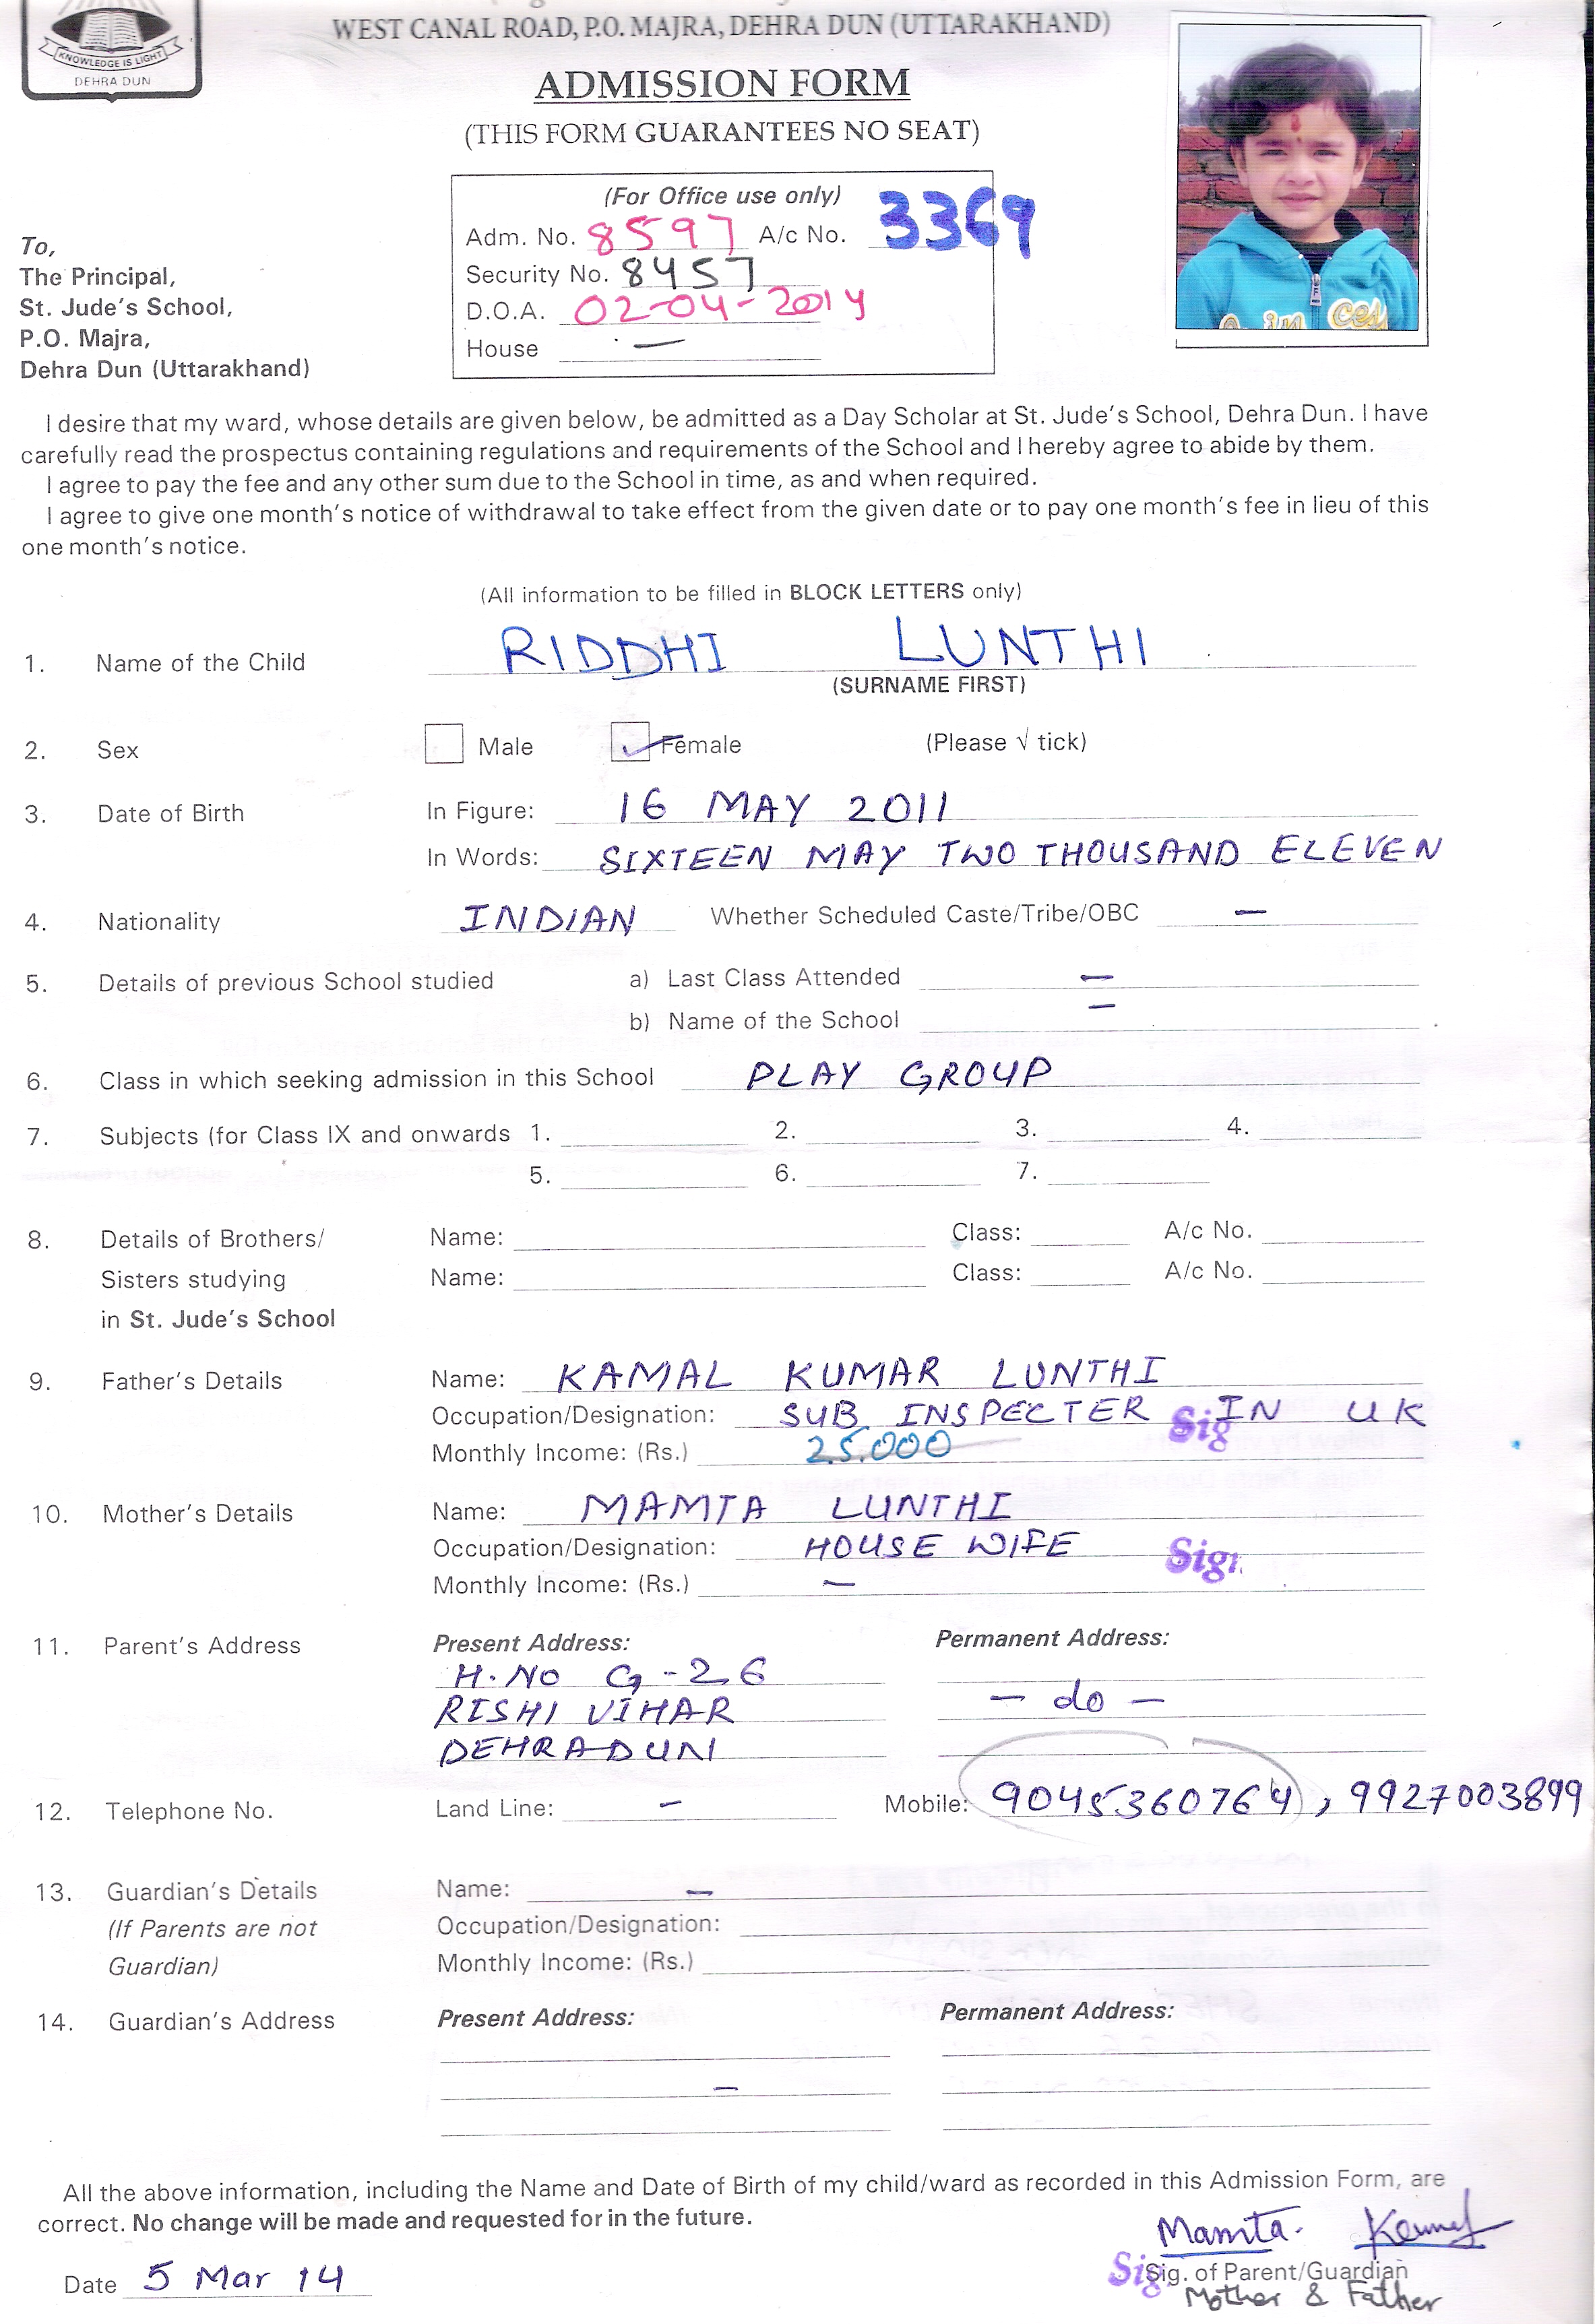 WEST CANAL ROAD, P.O. MAJRA, DEHRA DUN (UTTARAKHAND)
KNOWLEDGE IS LIGHT
DEHRA DUN
ADMISSION FORM
(THIS FORM GUARANTEES NO SEAT)
(For Office use only)
Adm. No. 8597 A/c No. 3369
Security No. 8457
D.O.A. 02-04-2014
House —
To,
The Principal,
St. Jude's School,
P.O. Majra,
Dehra Dun (Uttarakhand)
I desire that my ward, whose details are given below, be admitted as a Day Scholar at St. Jude's School, Dehra Dun. I have
carefully read the prospectus containing regulations and requirements of the School and I hereby agree to abide by them.
I agree to pay the fee and any other sum due to the School in time, as and when required.
I agree to give one month's notice of withdrawal to take effect from the given date or to pay one month's fee in lieu of this
one month's notice.
(All information to be filled in BLOCK LETTERS only)
1. Name of the Child RIDDHI LUNTHI
(SURNAME FIRST)
2. Sex Male ✓ Female (Please √ tick)
3. Date of Birth In Figure: 16 MAY 2011
In Words: SIXTEEN MAY TWO THOUSAND ELEVEN
4. Nationality INDIAN Whether Scheduled Caste/Tribe/OBC —
5. Details of previous School studied a) Last Class Attended —
b) Name of the School —
6. Class in which seeking admission in this School PLAY GROUP
7. Subjects (for Class IX and onwards 1. 2. 3. 4.
5. 6. 7.
8. Details of Brothers/ Name: Class: A/c No.
Sisters studying Name: Class: A/c No.
in St. Jude's School
9. Father's Details Name: KAMAL KUMAR LUNTHI
Occupation/Designation: SUB INSPECTER IN UK Sig
Monthly Income: (Rs.) 25.000
10. Mother's Details Name: MAMTA LUNTHI
Occupation/Designation: HOUSE WIFE Sig
Monthly Income: (Rs.) —
11. Parent's Address Present Address: Permanent Address:
H. NO G-26
RISHI VIHAR — do —
DEHRADUN
12. Telephone No. Land Line: — Mobile: 9045360764, 9927003899
13. Guardian's Details Name: —
(If Parents are not Occupation/Designation:
Guardian) Monthly Income: (Rs.)
14. Guardian's Address Present Address: Permanent Address:
—
All the above information, including the Name and Date of Birth of my child/ward as recorded in this Admission Form, are
correct. No change will be made and requested for in the future.
Mamta.
Date 5 Mar 14 Sig Sig. of Parent/Guardian
Mother & Father